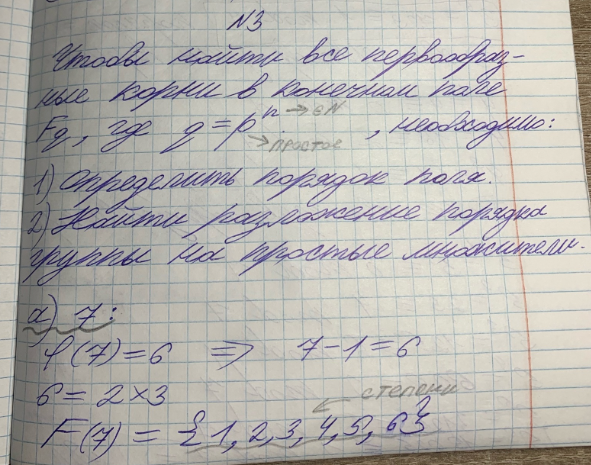 N3
Чтобы найти все первообраз-
ные корни в конечном поле
Fq, где q = pⁿ → ∈N , необходимо:
→ простое
1) Определить порядок поля.
2) Найти разложение порядка
группы на простые множители.
a) 7:
φ(7) = 6 ⇒ 7-1 = 6
6 = 2 × 3
степени
F(7) = {1, 2, 3, 4, 5, 6}